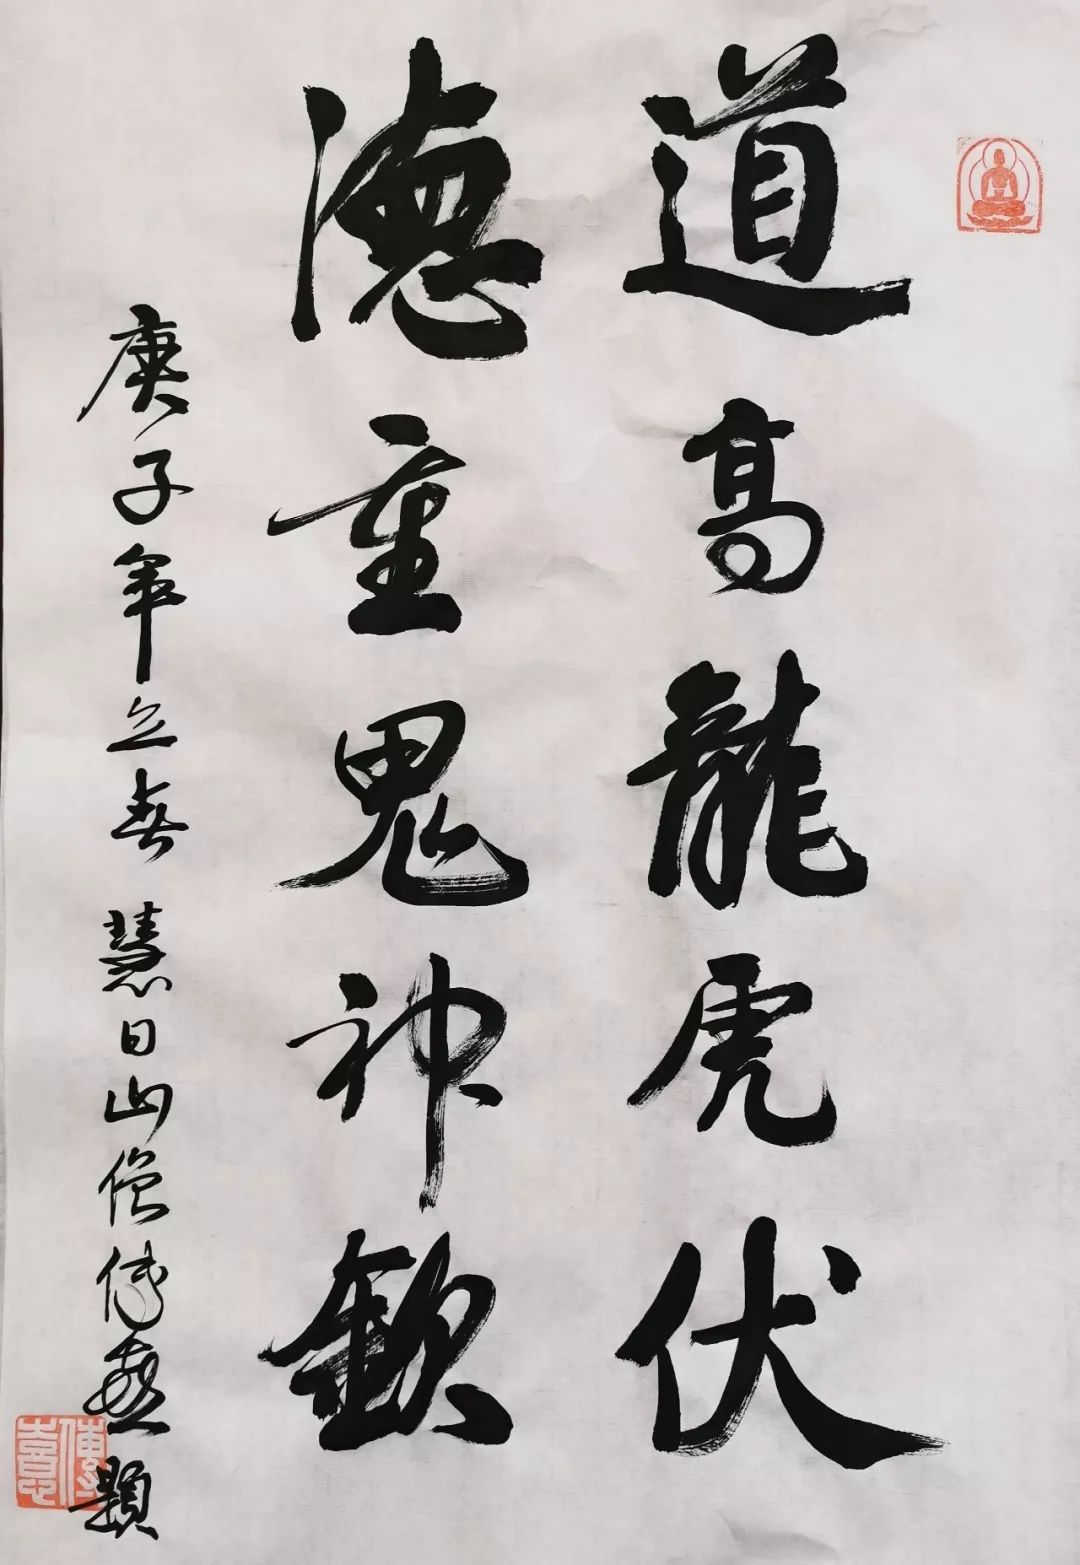 道高龍虎伏
德重鬼神欽
庚子年立春 慧日山僧傳憙題
傳憙